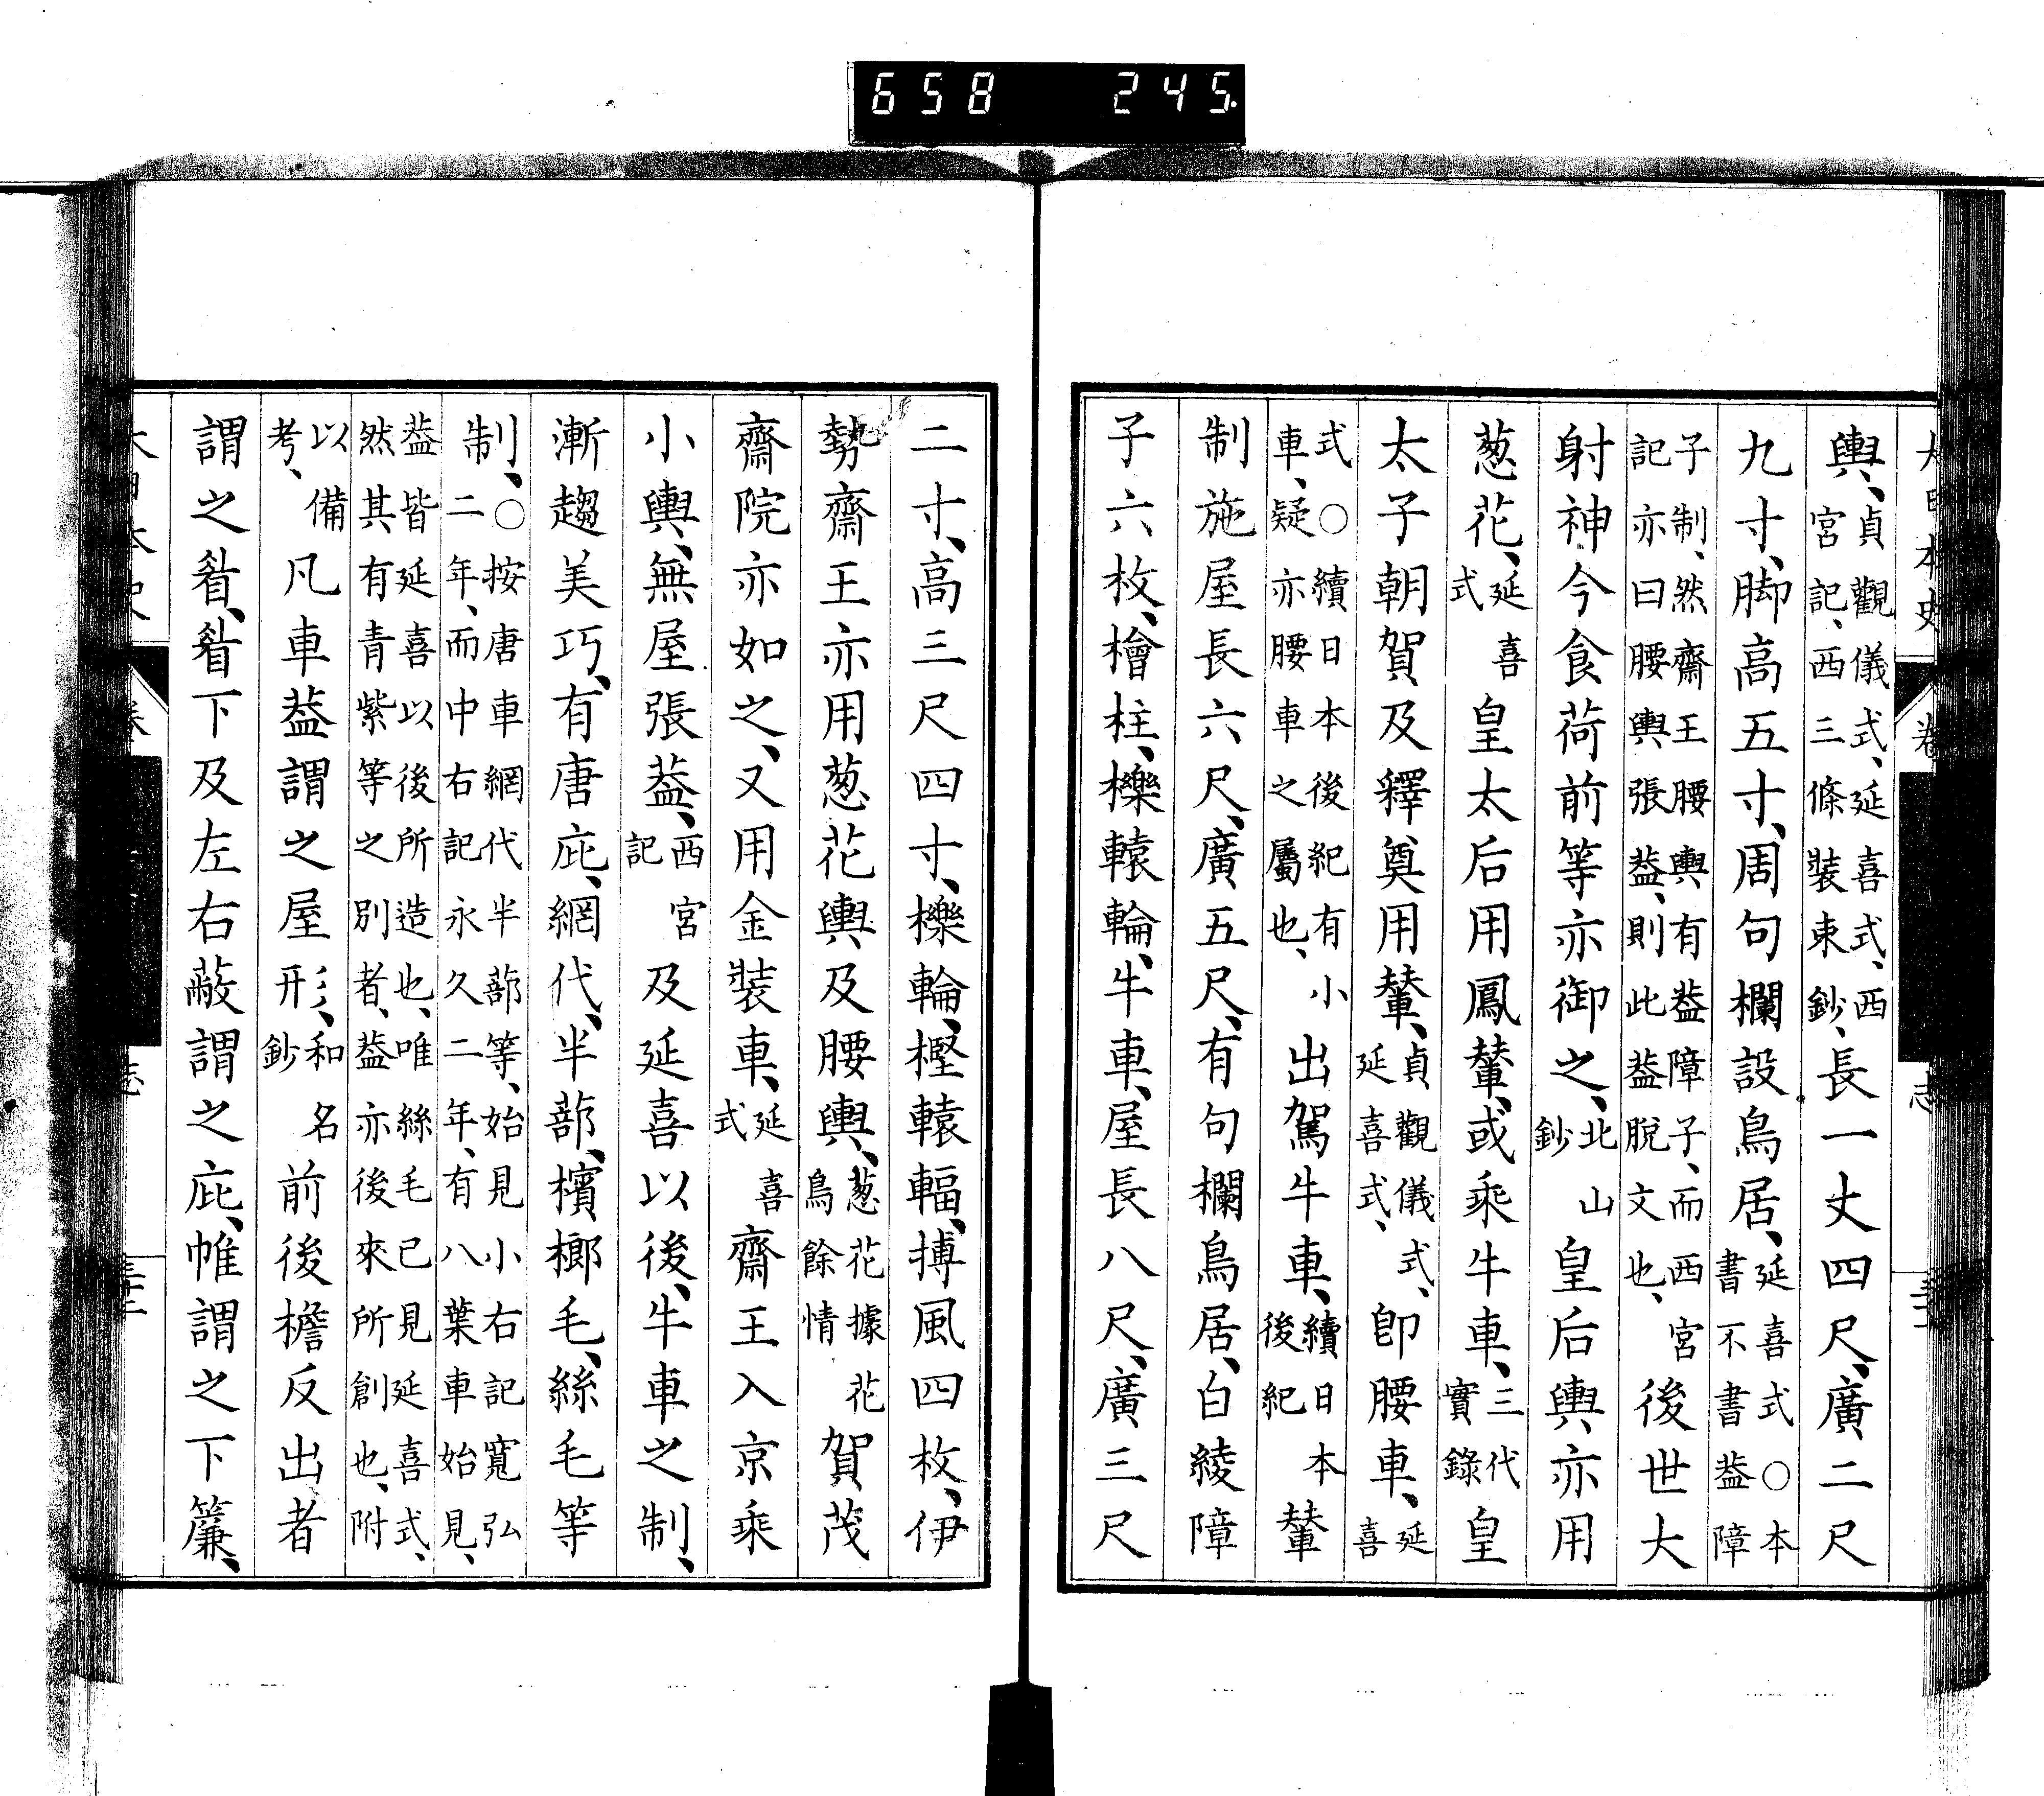 658 245.
輿、貞觀儀式、延喜式、西宮記、西三條裝束鈔、長一丈四尺、廣二尺
九寸、脚高五寸、周句欄設鳥居、延喜式○本書不書葢障
子制、然齋王腰輿有葢障子、而西宮記亦曰腰輿張葢、則此葢脫文也、後世大
射神今食荷前等亦御之、北山鈔皇后輿亦用
葱花、延喜式皇太后用鳳輦、或乘牛車、三代實錄皇
太子朝賀及釋奠用輦、貞觀儀式、延喜式、卽腰車、延喜
式○續日本後紀有小車、疑亦腰車之屬也、出駕牛車、續日本後紀輦
制施屋長六尺、廣五尺、有句欄鳥居、白綾障
子六枚、檜柱、櫟轅輪、牛車、屋長八尺、廣三尺
二寸、高三尺四寸、櫟輪、樫轅輻、摶風四枚、伊
勢齋王亦用葱花輿、及腰輿、葱花據花鳥餘情賀茂
齋院亦如之、又用金裝車、延喜式齋王入京乘
小輿、無屋張葢、西宮記及延喜以後、牛車之制、
漸趨美巧、有唐庇、網代、半蔀、檳榔毛、絲毛等
制、○按唐車網代半蔀等、始見小右記寬弘二年、而中右記永久二年、有八葉車始見、
葢皆延喜以後所造也、唯絲毛已見延喜式、然其有青紫等之別者、葢亦後來所創也、附
以備考、凡車葢謂之屋形、和名鈔前後檐反出者
謂之眉、眉下及左右蔽謂之庇、帷謂之下簾、